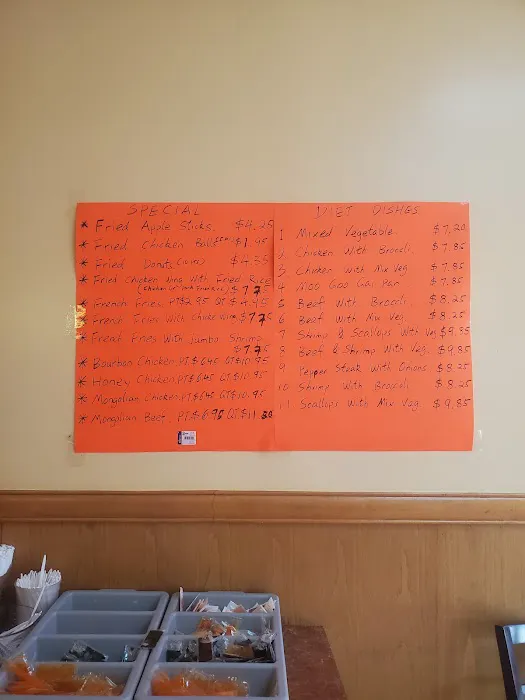 SPECIAL
* Fried Apple Sticks. $4.25
* Fried Chicken Balls $1.45
* Fried Donuts $4.35
* Fried Chicken Wing With Fried Rice
$7.75
* French Fries PT $2.95 QT $4.45
* French Fries With Chicken Wing $7.75
* Freat Fries With Jumbo Shrimp
$7.75
* Bourbon Chicken PT $6.45 QT $10.95
* Honey Chicken PT $6.45 QT $10.95
* Mongolian Chicken PT $6.45 QT $10.95
* Mongolian Beef. PT $6.95 QT $11.50
DIET DISHES
1 Mixed Vegetable. $7.20
2 Chicken With Brocoli. $7.85
3 Chicken With Mix Veg $7.85
4 Moo Goo Gai Pan $7.85
5 Beef With Brocoli. $8.25
6 Beef With Mix Veg $8.25
7 Shrimp & Scallops With Veg $9.35
8 Beef & Shrimp With Veg. $9.85
9 Pepper Steak With Onions $8.25
10 Shrimp With Brocoli $8.25
11 Scallops With Mix Veg $9.85